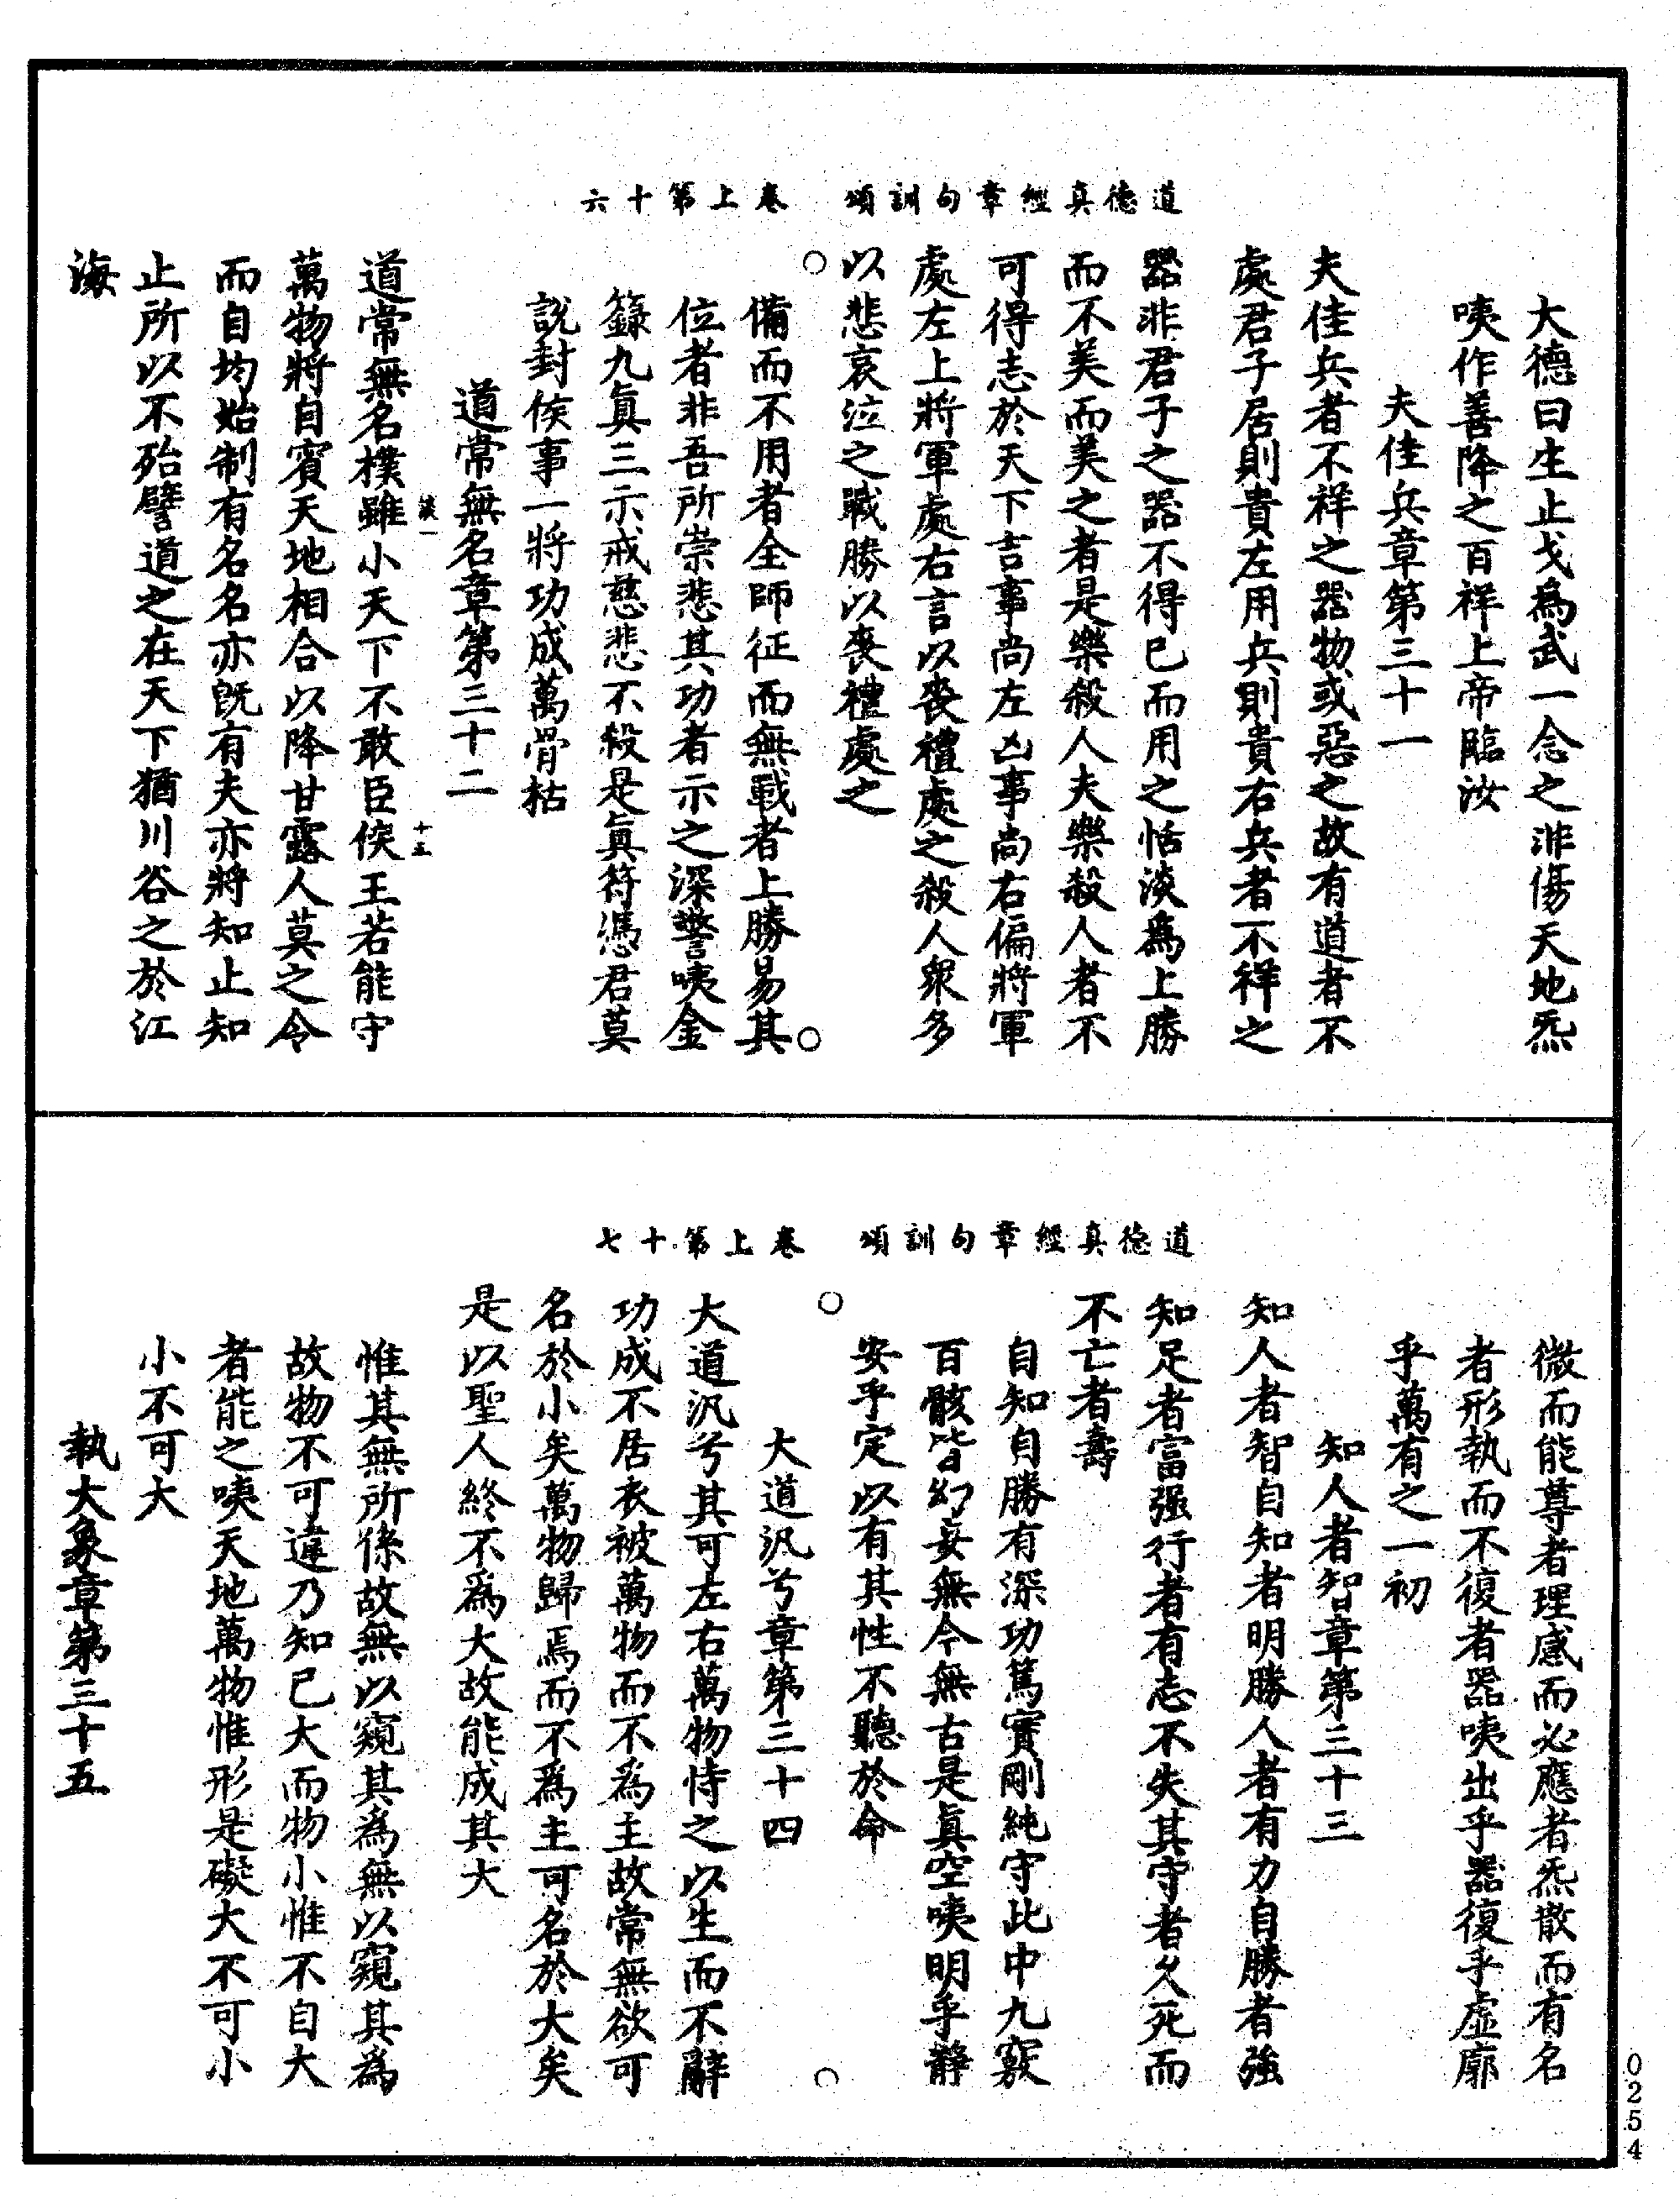 道德真經章句訓頌　卷上第十六
大德曰生止戈爲武一念之非傷天地炁
咦作善降之百祥上帝臨汝
夫佳兵章第三十一
夫佳兵者不祥之器物或惡之故有道者不
處君子居則貴左用兵則貴右兵者不祥之
器非君子之器不得已而用之恬淡爲上勝
而不美而美之者是樂殺人夫樂殺人者不
可得志於天下吉事尚左凶事尚右偏將軍
處左上將軍處右言以喪禮處之殺人衆多
以悲哀泣之戰勝以喪禮處之
備而不用者全師征而無戰者上勝易其
位者非吾所崇悲其功者示之深警咦金
籙九眞三示戒慈悲不殺是眞符憑君莫
說封侯事一將功成萬骨枯
道常無名章第三十二
談一
十五
道常無名樸雖小天下不敢臣侯王若能守
萬物將自賓天地相合以降甘露人莫之令
而自均始制有名名亦旣有夫亦將知止知
止所以不殆譬道之在天下猶川谷之於江
海
道德真經章句訓頌　卷上第十七
微而能尊者理感而必應者炁散而有名
者形執而不復者器咦出乎器復乎虛廓
乎萬有之一初
知人者智章第三十三
知人者智自知者明勝人者有力自勝者強
知足者富强行者有志不失其守者久死而
不亡者壽
自知自勝有深功篤實剛純守此中九竅
百骸皆幻妄無今無古是眞空咦明乎靜
安乎定以有其性不聽於命
大道汎兮章第三十四
大道汎兮其可左右萬物恃之以生而不辭
功成不居衣被萬物而不爲主故常無欲可
名於小矣萬物歸焉而不爲主可名於大矣
是以聖人終不爲大故能成其大
惟其無所係故無以窺其爲無以窺其爲
故物不可違乃知已大而物小惟不自大
者能之咦天地萬物惟形是礙大不可小
小不可大
執大象章第三十五
0254